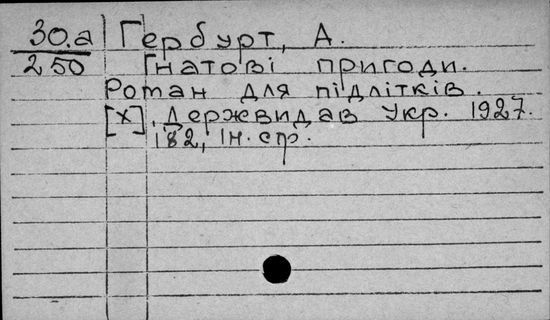 30.а Гербурт, А.
250 Гнатові пригоди.
Роман для підлітків.
[Х], Держвидав Укр. 1927.
182, Ін. стр.